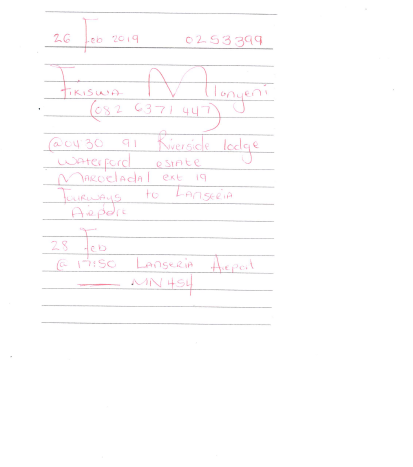 26 Feb 2019 0253399
Fikiswa Mlonyeni
(082 6371 447)
@0430 91 Riverside lodge
Waterford estate
Maroeladal ext 19
Fourways to Lanseria
Airport
28 Feb
@ 17:50 Lanseria Airport
MN 454